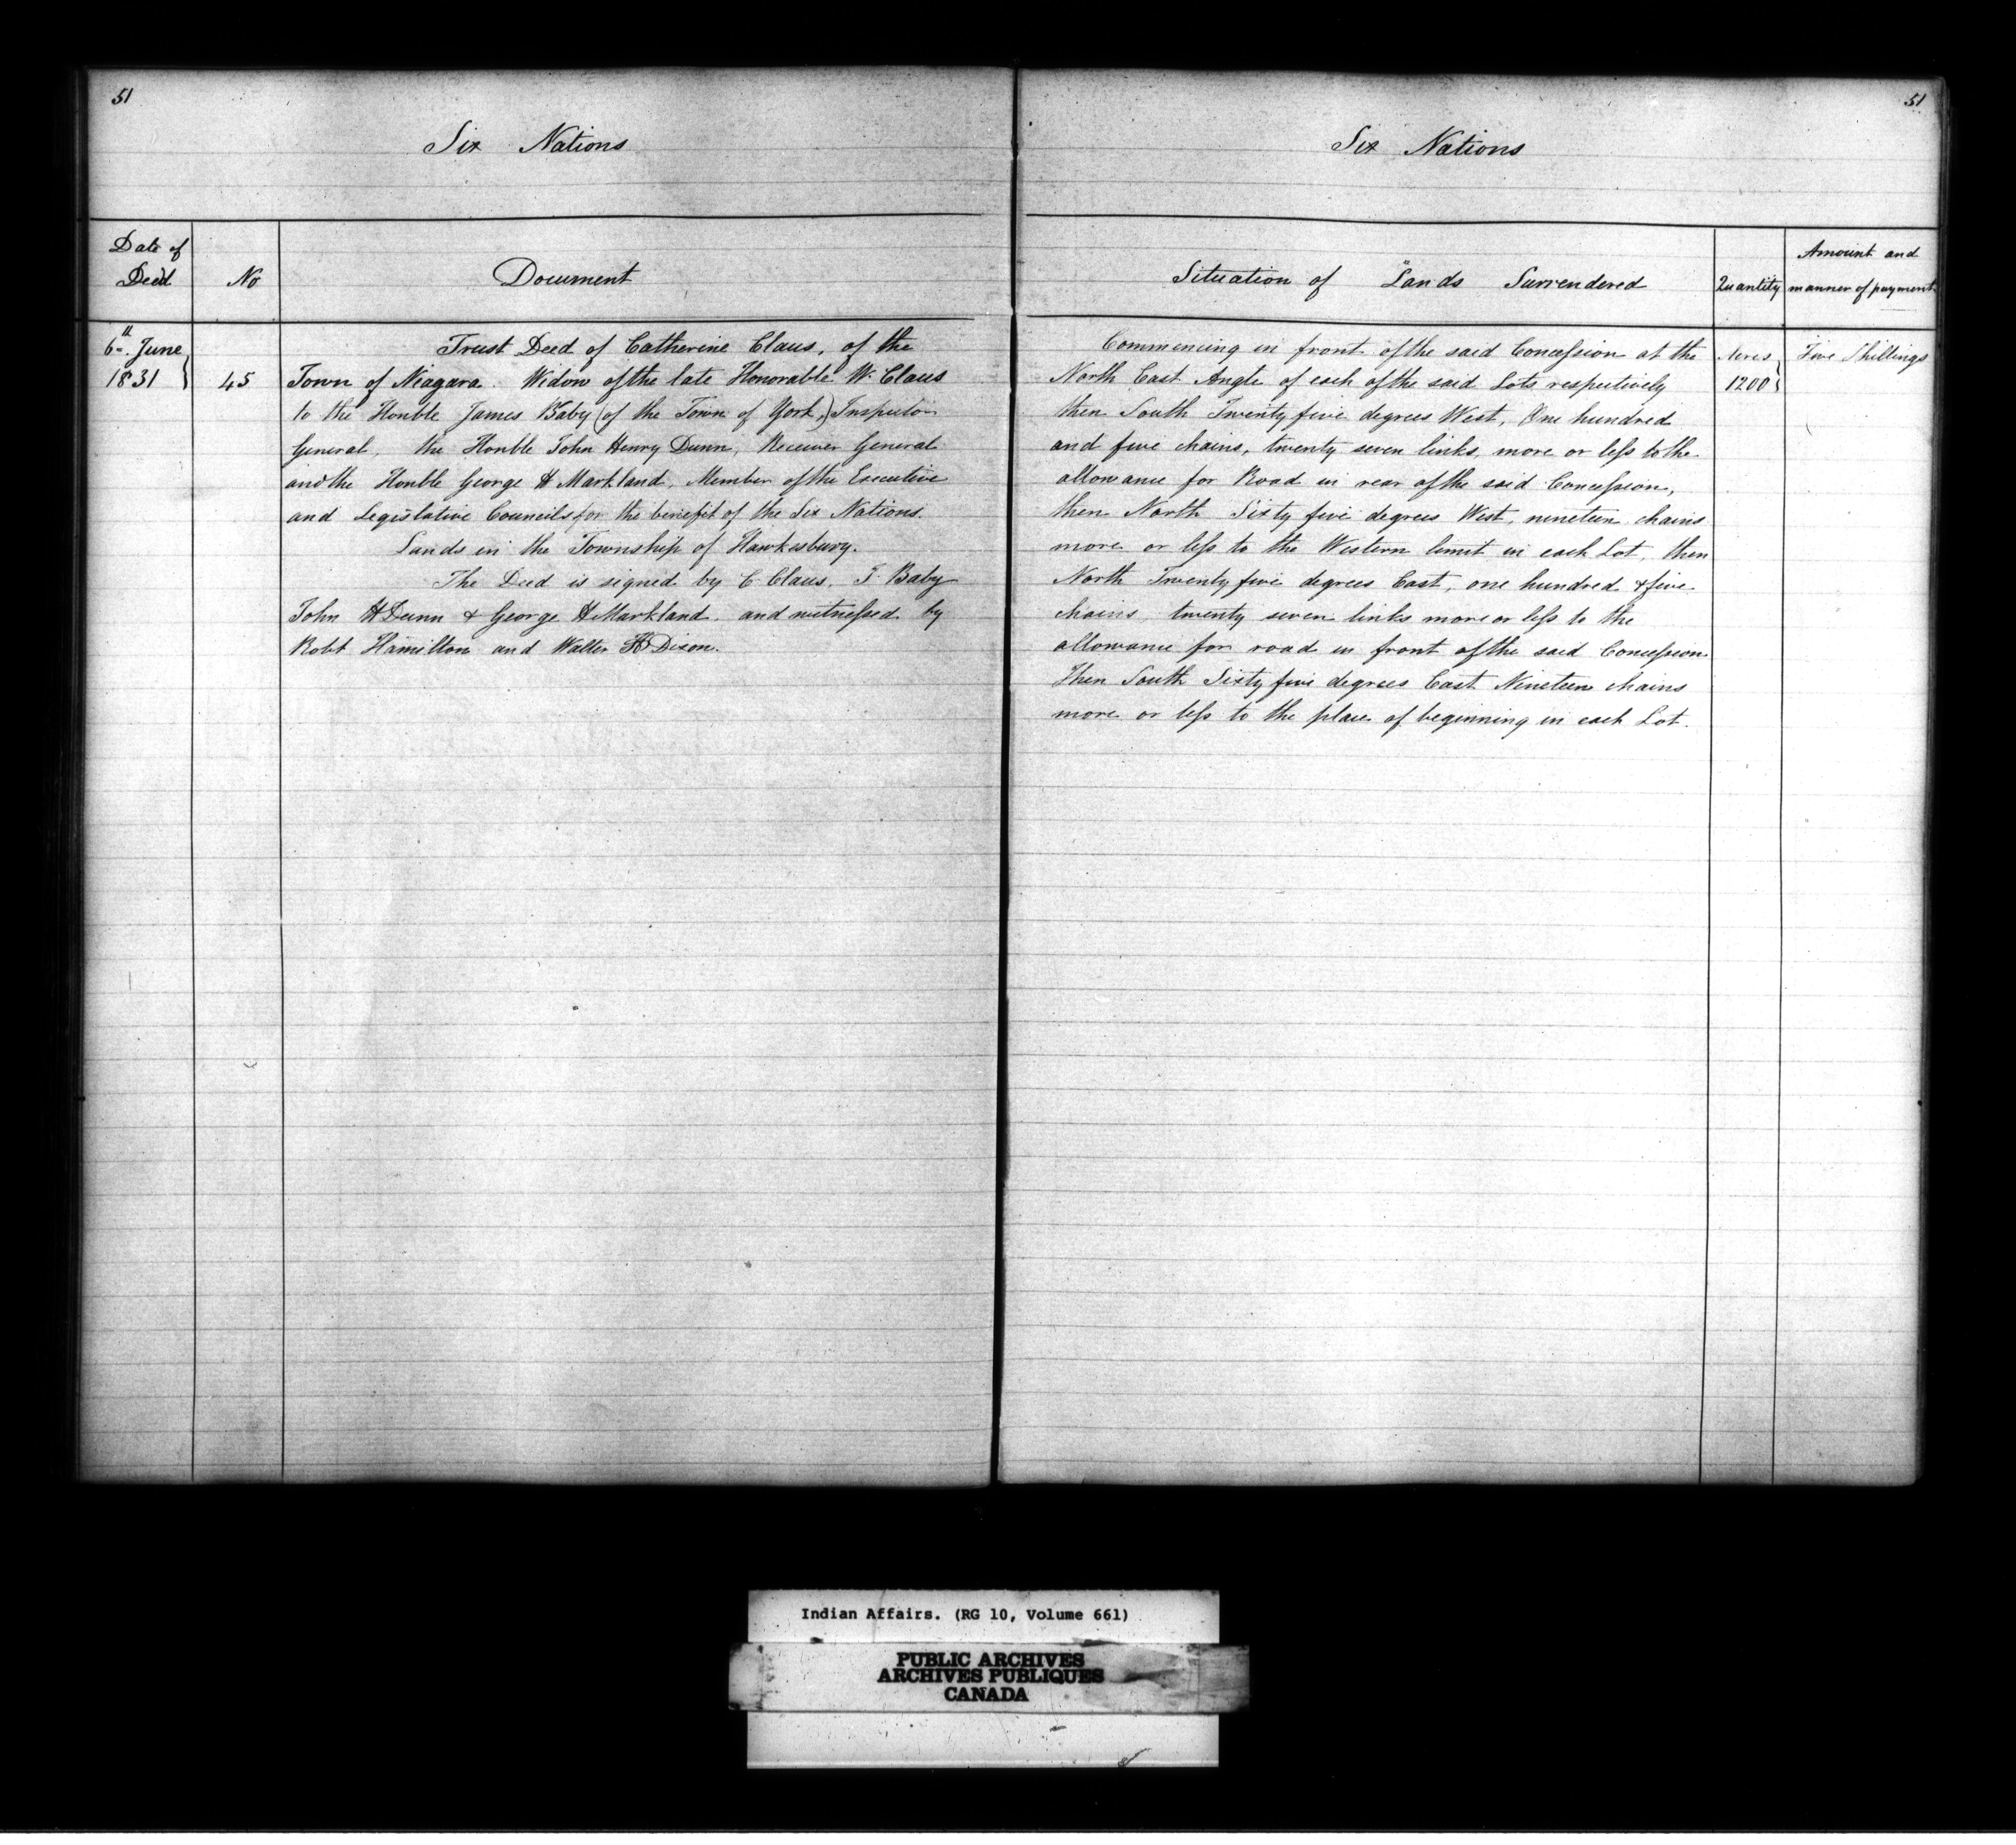 51
Six Nations
Date of
Deed
No
Document
6th. June
1831
45
Trust Deed of Catherine Claus, of the
Town of Niagara. Widow of the late Honorable W. Claus
to the Honble James Baby (of the Town of York,) Inspector
General, the Honble John Henry Dunn, Receiver General
and the Honble George H Markland, Member of the Executive
and Legislative Councils for the benefit of the Six Nations.
Lands in the Township of Hawkesbury.
The Deed is signed by C Claus, J. Baby
John H Dunn & George H Markland. and witnessed by
Robt Hamilton and Walter H Dixon.
51
Six Nations
Situation of Lands Surrendered
Quantity
Amount and
manner of payment
Commencing in front of the said Concession at the
North East Angle of each of the said Lots respectively
then South Twenty five degrees West, One hundred
and five chains, twenty seven links, more or less to the
allowance for Road in rear of the said Concession,
then North Sixty five degrees West, nineteen chains
more or less to the Western limit in each Lot, then
North Twenty five degrees East, one hundred & five
chains, twenty seven links more or less to the
allowance for road in front of the said Concession
Then South Sixty five degrees East Nineteen chains
more or less to the place of beginning in each Lot.
Acres
1200
Five Shillings
Indian Affairs. (RG 10, Volume 661)
PUBLIC ARCHIVES
ARCHIVES PUBLIQUES
CANADA